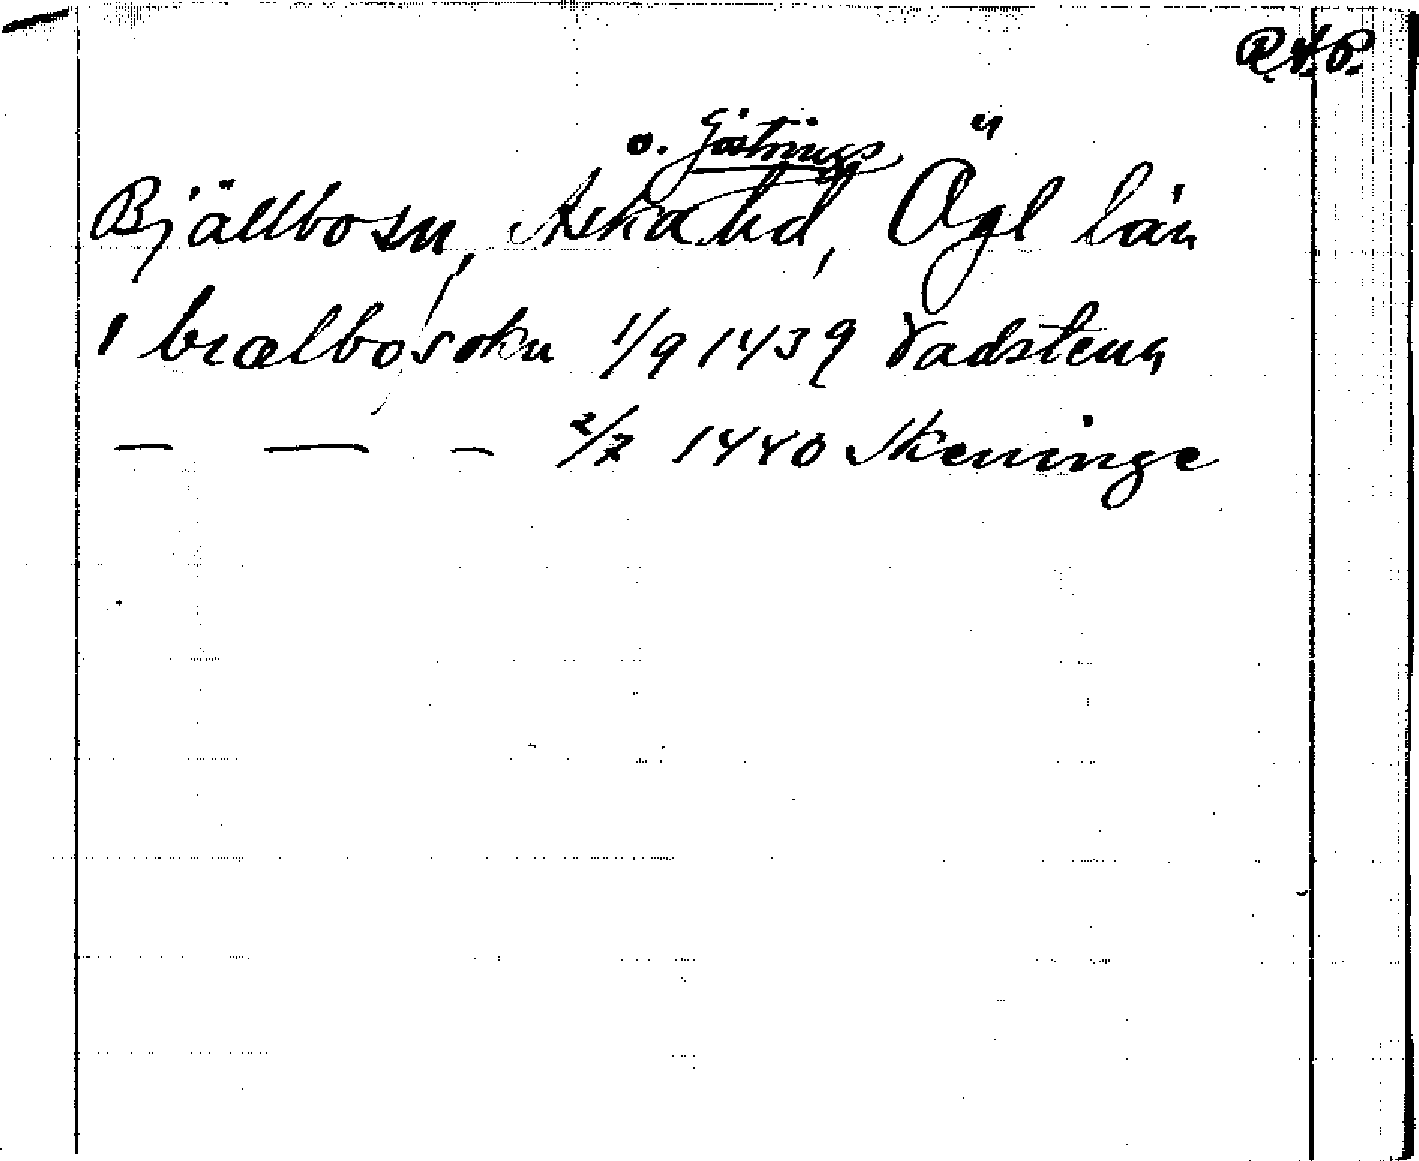 R.A.P.
o. Göstrings
Bjälbo sn, Aska hd, Ögl län
i bialbo sokn 1/9 1439 Vadstena
— — — 2/7 1440 Skeninge